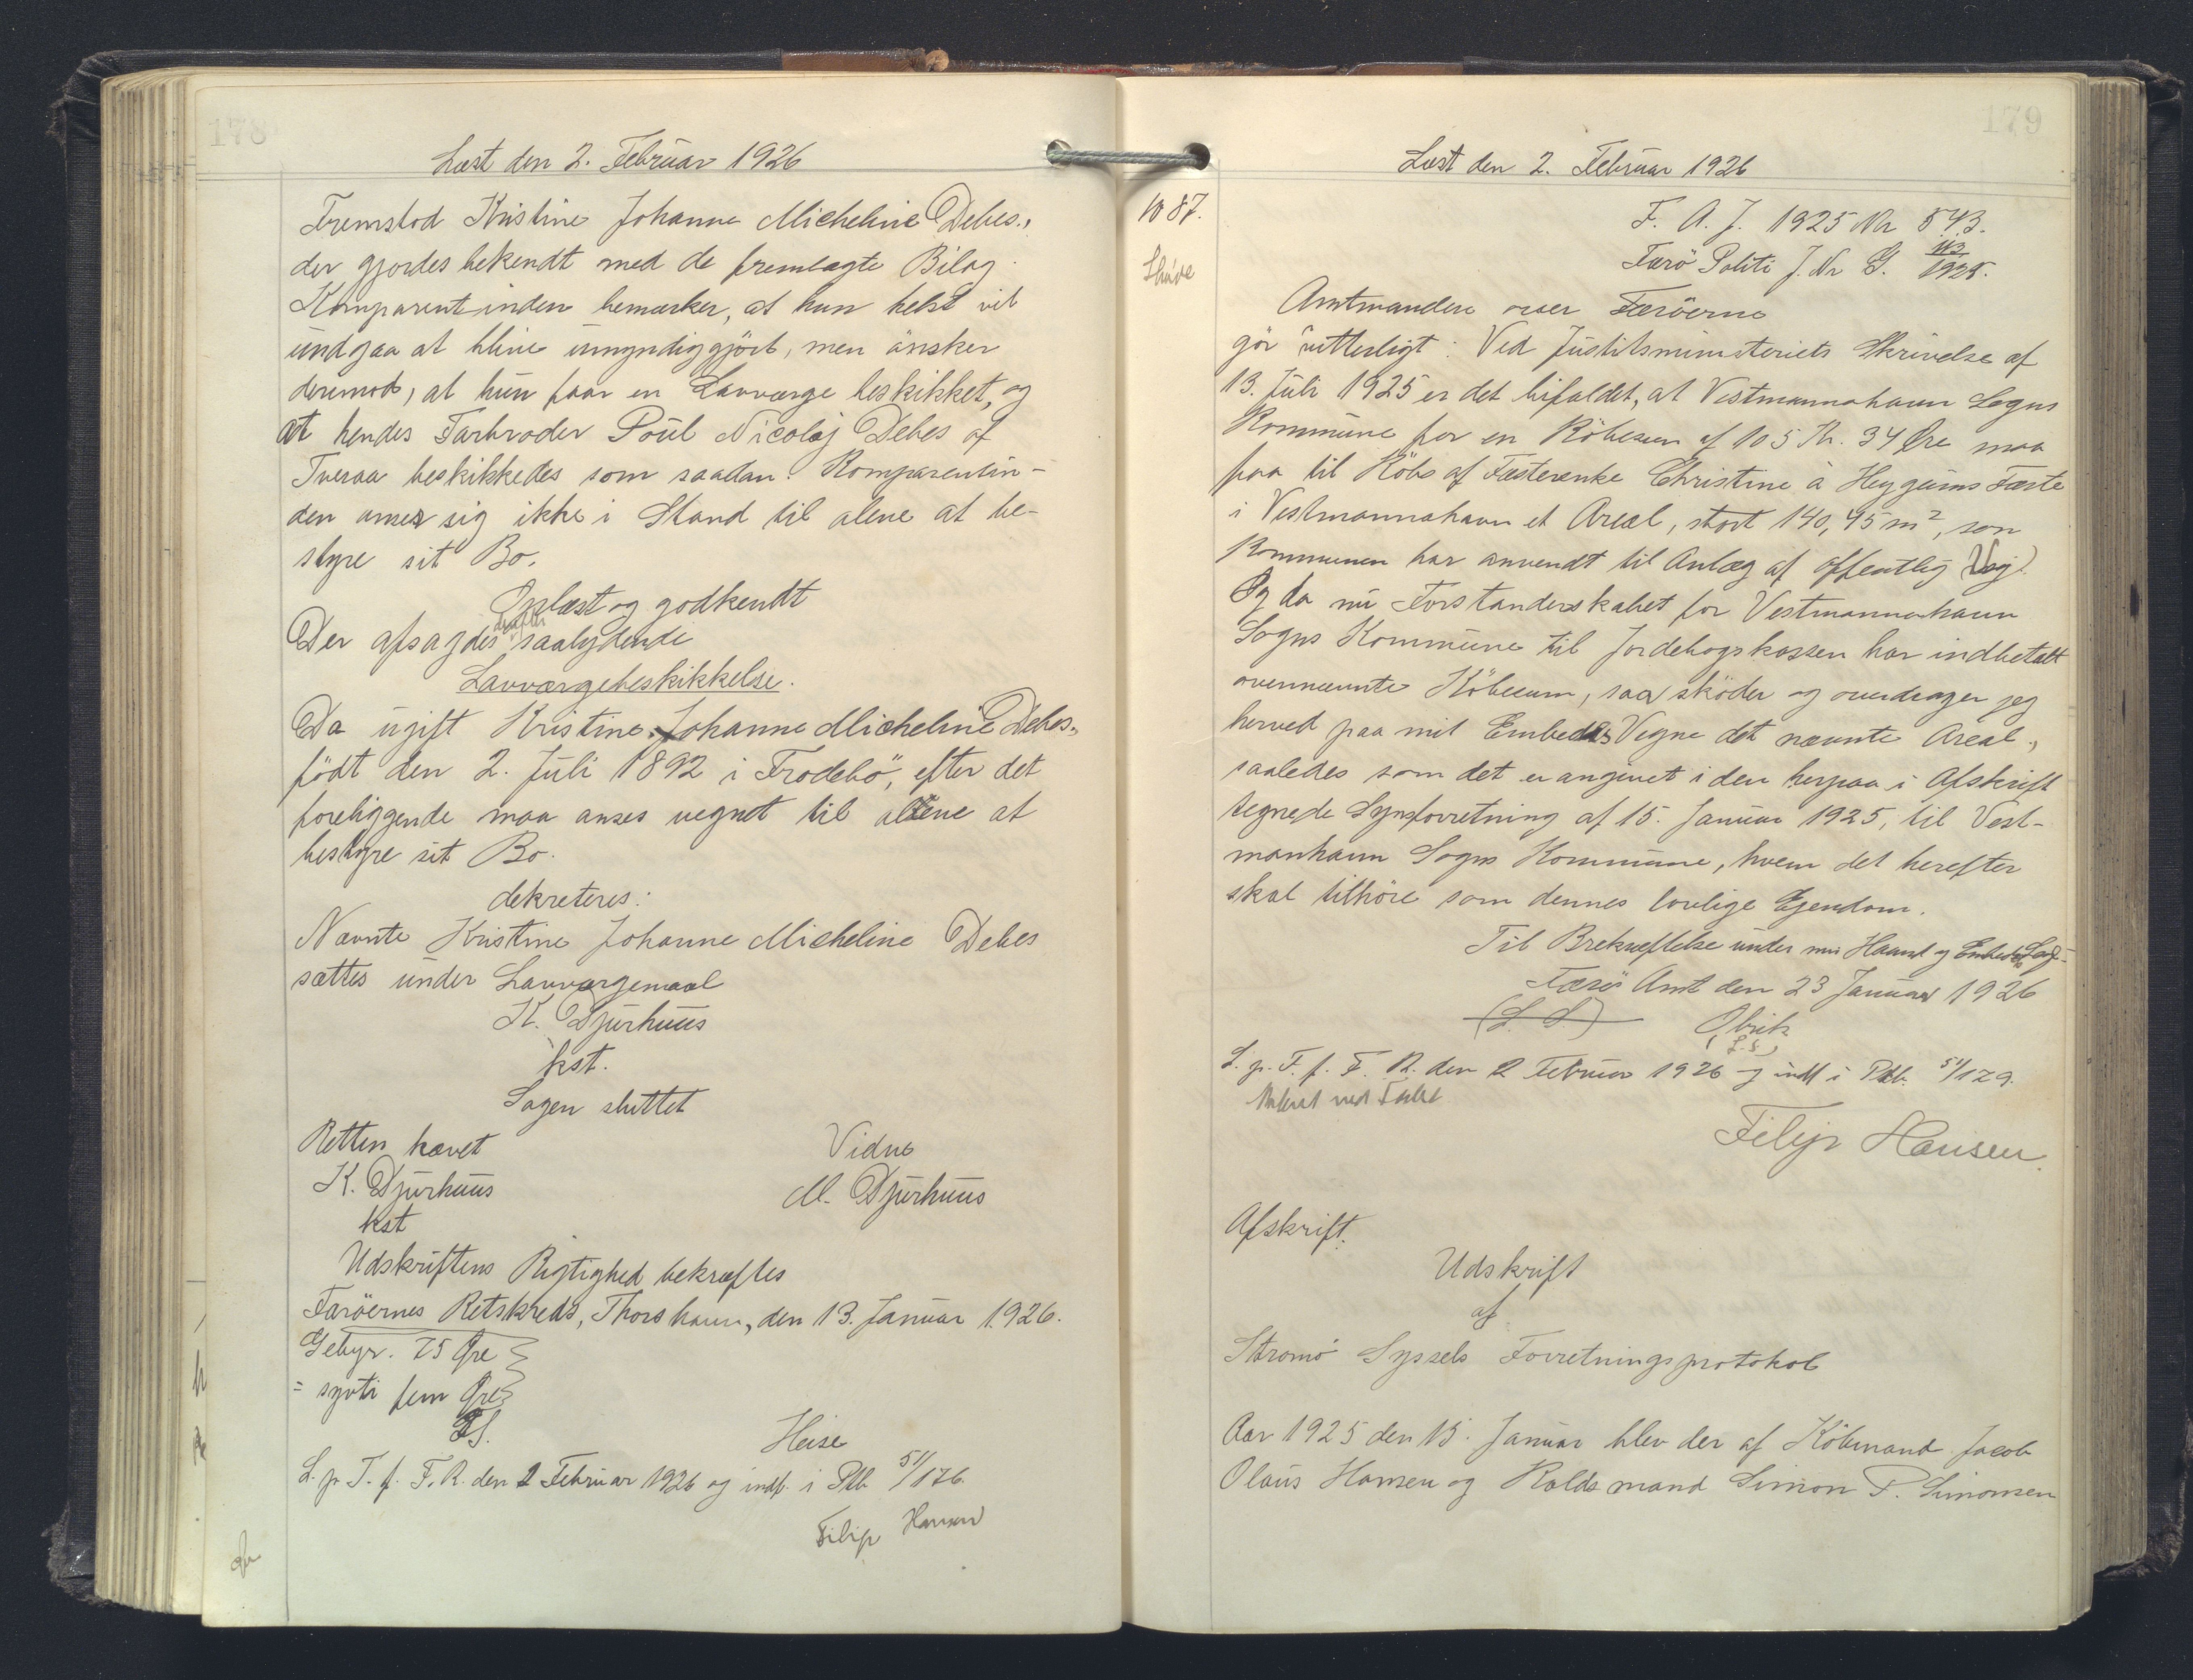 178
Læst den 2. Februar 1926
Fremstod Kristine Johanne Micheline Debes.,
der gjordes bekendt med de fremlagte Bilag.
Komparentinden bemærker, at hun helst vil
undgaa at blive umyndiggjört, men önsker
derimod, at hun faar en Lavværge beskikket, og
at hendes Farbroder Poul Nicolaj Debes af
Tveraa beskikkedes som saadan. Komparentin-
den anser sig ikke i Stand til alene at be-
styre sit Bo.
Oplæst og godkendt
Der afsagdes derefter saalydende
Lavværgebeskikkelse.
Da ugift Kristine Johanne Micheline Debes.,
födt den 2. Juli 1892 i Frodebö, efter det
foreliggende maa anses uegnet til alene at
bestyre sit Bo.
dekreteres:
Nævnte Kristine Johanne Micheline Debes
sættes under Lavværgemaal
K. Djurhuus
kst.
Sagen sluttet
Retten hævet
Vidne
K. Djurhuus
M. Djurhuus
kst
Udskriftens Rigtighed bekræftes
Færöernes Retskreds, Thorshavn, den 13. Januar 1926.
Gebyr. 75 Øre
= syvti fem Øre
Heise
L. p. T. f. F. R. den 2 Februar 1926 og indf. i Ptb. 51/176.
Filip Hansen
179
Læst den 2. Februar 1926
1087.
F. A. J. 1925 Nr 543.
Færö Politi J. Nr G. 113/1925.
Amtmanden over Færöerne
gör vitterligt: Ved Justitsministeriets Skrivelse af
13. Juli 1925 er det bifaldet, at Vestmannahavn Sogns
Kommune for en Köbesum af 105 Kr. 34 Øre maa
faa til Köbs af Fæsteenke Christine à Heygums Fæste
i Vestmannahavn et Areal, stort 140,45 m², som
Kommunen har anvendt til Anlæg af offentlig Vej.
Og da nu Forstanderskabet for Vestmannahavn
Sogns Kommune til Jordebogskassen har indbetalt
ovennævnte Köbesum, saa sköder og overdrager jeg
herved paa mit Embeds Vegne det nævnte Areal,
saaledes som det er angivet i den herpaa i Afskrift
tegnede Synsforretning af 15. Januar 1925, til Vest-
manhavn Sogns Kommune, hvem det herefter
skal tilhöre som dennes lovlige Ejendom.
Til Bekræftelse under min Haand og Embeds Segl.
Færö Amt den 23 Januar 1926
(L. S)
(L.S.)
L. p. T. f. F. R. den 2 Februar 1926 og indf i Ptb. 51/179.
Filip Hansen.
Afskrift:
Udskrift
af
Strømö Syssels Forretningsprotokol
Aar 1925 den 15. Januar blev der af Köbmand Jacob
Olaus Hansen og Røldsmand Simon P. Simonsen